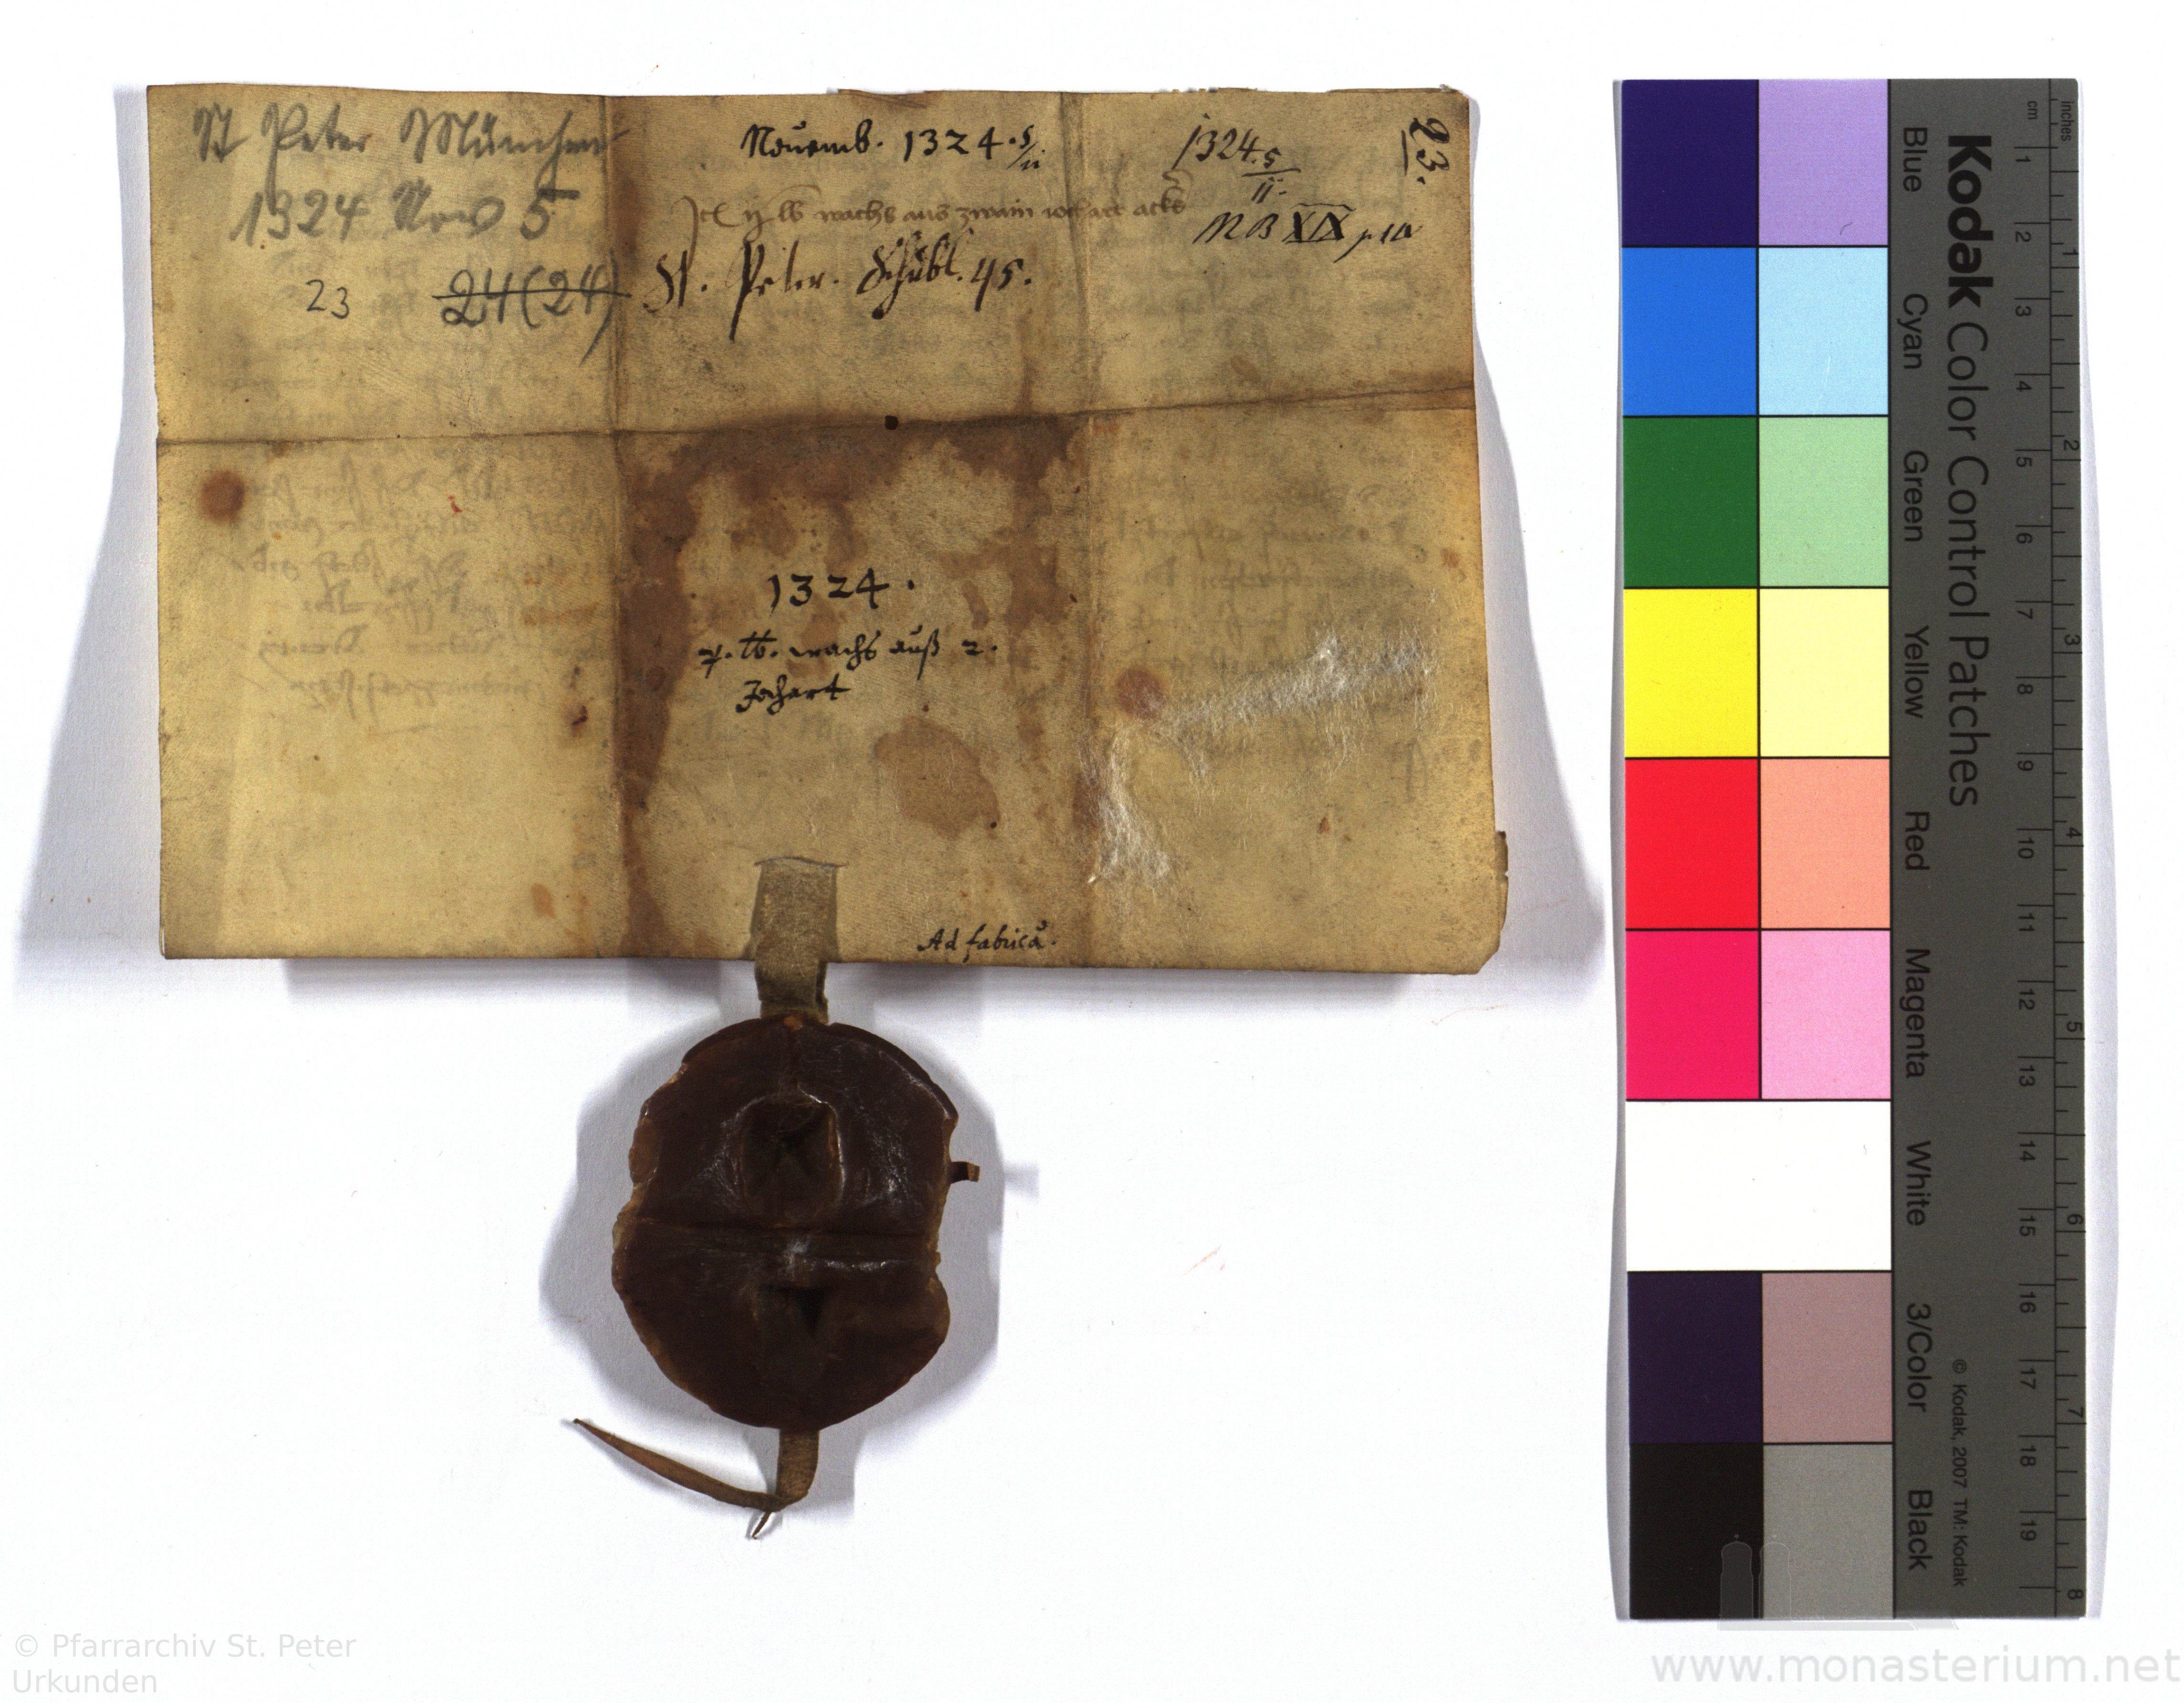 St Peter München
1324 Nov 5
23 24(24)
Nouemb. 1324. 5/ii
wachs aus zwain
St. Peter. Schubl. 45.
1324. 5/ii.
MB XIX p.
23.
1324.
lb. wachs auß 2.
Jochart
Ad fabricā.
Kodak Color Control Patches
Blue Cyan Green Yellow Red Magenta White 3/Color Black
© Kodak, 2007 TM: Kodak
cm 1 2 3 4 5 6 7 8 9 10 11 12 13 14 15 16 17 18 19
inches 1 2 3 4 5 6 7 8
© Pfarrarchiv St. Peter
Urkunden
www.monasterium.net